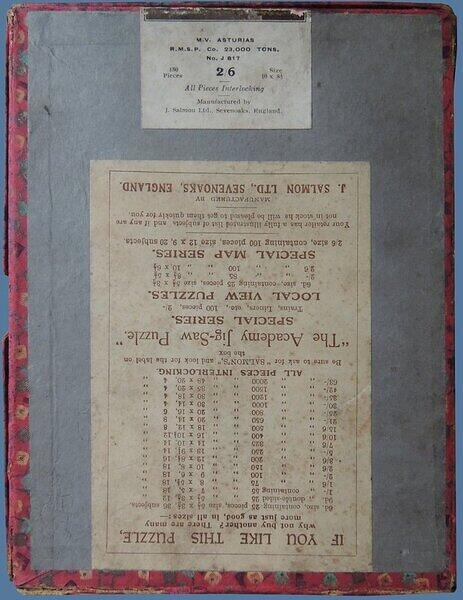 M.V. ASTURIAS
R.M.S.P. Co. 23,000 TONS.
No. J 817
150 Pieces 2/6 Size 10 x 8½
All Pieces Interlocking
Manufactured by
J. Salmon Ltd., Sevenoaks, England.
IF YOU LIKE THIS PUZZLE,
why not buy another? There are many
more just as good, in all sizes:—
6d. size, containing 25 pieces, 5½ x 3½, subjects
9d. " double-sided 25 "
1/- " containing 55 " 7 x 5, 18
1/6 " " 75 "
2/- " " 100 " 9 x 6, 18
2/6 " " 150 " 10 x 8, 18
" " 200 "
5/- " " 250 "
7/6 " " 325 " 14 x 10, 14
10/6 " " 400 "
15/6 " " 500 " 18 x 12, 8
21/- " " 650 " 20 x 16, 6
25/- " " 800 " 20 x 16, 6
30/- " " 1000 " 30 x 14, 4
35/- " " 1200 " 30 x 18, 4
42/- " " 1500 " 35 x 20, 4
63/- " " 2000 " 48 x 30, 4
ALL PIECES INTERLOCKING.
Be sure to ask for "SALMON'S," and look for the label on
the box
"The Academy Jig-Saw Puzzle."
SPECIAL SERIES.
Trains, Liners, etc., 100 pieces, 2/-
LOCAL VIEW PUZZLES.
6d. size, containing 25 pieces, size 5½ x 3½
2/- " " 85 " " 8½ x 5½
2/6 " " 100 " " 10 x 6½
SPECIAL MAP SERIES.
2/6, size, containing 100 pieces, size 12 x 9, 20 subjects.
Your retailer has a fully illustrated list of subjects and if any are
not in stock he will be pleased to get them quickly for you.
MANUFACTURED BY
J. SALMON LTD., SEVENOAKS, ENGLAND.